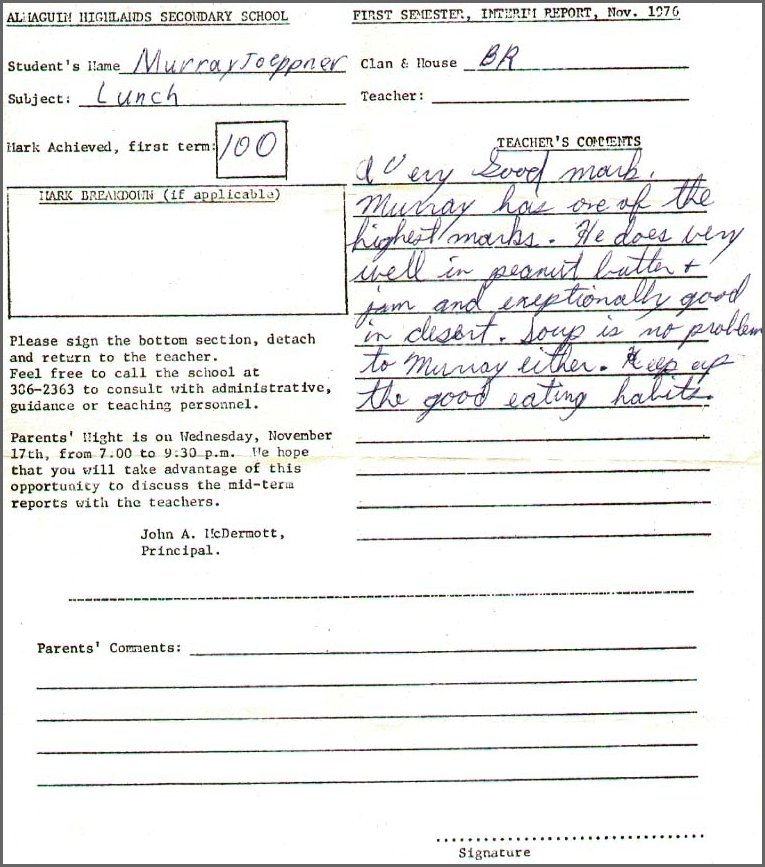 ALMAGUIN HIGHLANDS SECONDARY SCHOOL
FIRST SEMESTER, INTERIM REPORT, Nov. 1976
Student's Name Murray Toeppner
Clan & House BR
Subject: Lunch
Teacher:
Mark Achieved, first term: 100
MARK BREAKDOWN (if applicable)
TEACHER'S COMMENTS
A Very Good mark.
Murray has one of the
highest marks. He does very
well in peanut butter +
jam and exeptionally good
in desert. Soup is no problem
to Murray either. Keep up
the good eating habits.
Please sign the bottom section, detach
and return to the teacher.
Feel free to call the school at
386-2363 to consult with administrative,
guidance or teaching personnel.
Parents' Night is on Wednesday, November
17th, from 7.00 to 9:30 p.m. We hope
that you will take advantage of this
opportunity to discuss the mid-term
reports with the teachers.
John A. McDermott,
Principal.
Parents' Comments:
Signature